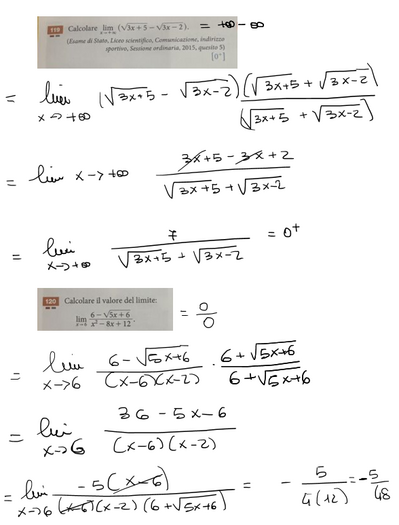 119 Calcolare lim x→+∞ (√3x+5 − √3x−2). = +∞ − ∞
(Esame di Stato, Liceo scientifico, Comunicazione, indirizzo
sportivo, Sessione ordinaria, 2015, quesito 5)
[0⁺]
= lim x→+∞ (√3x+5 − √3x−2) (√3x+5 + √3x−2) / (√3x+5 + √3x−2)
= lim x→+∞ 3x+5−3x+2 / √3x+5 + √3x−2
= lim x→+∞ 7 / √3x+5 + √3x−2 = 0⁺
120 Calcolare il valore del limite:
lim x→6 6−√5x+6 / x²−8x+12. = 0/0
= lim x→6 6−√5x+6 / (x−6)(x−2) · 6+√5x+6 / 6+√5x+6
= lim x→6 36−5x−6 / (x−6)(x−2)
= lim x→6 −5(x−6) / (x−6)(x−2)(6+√5x+6) = − 5 / 4(12) = −5/48